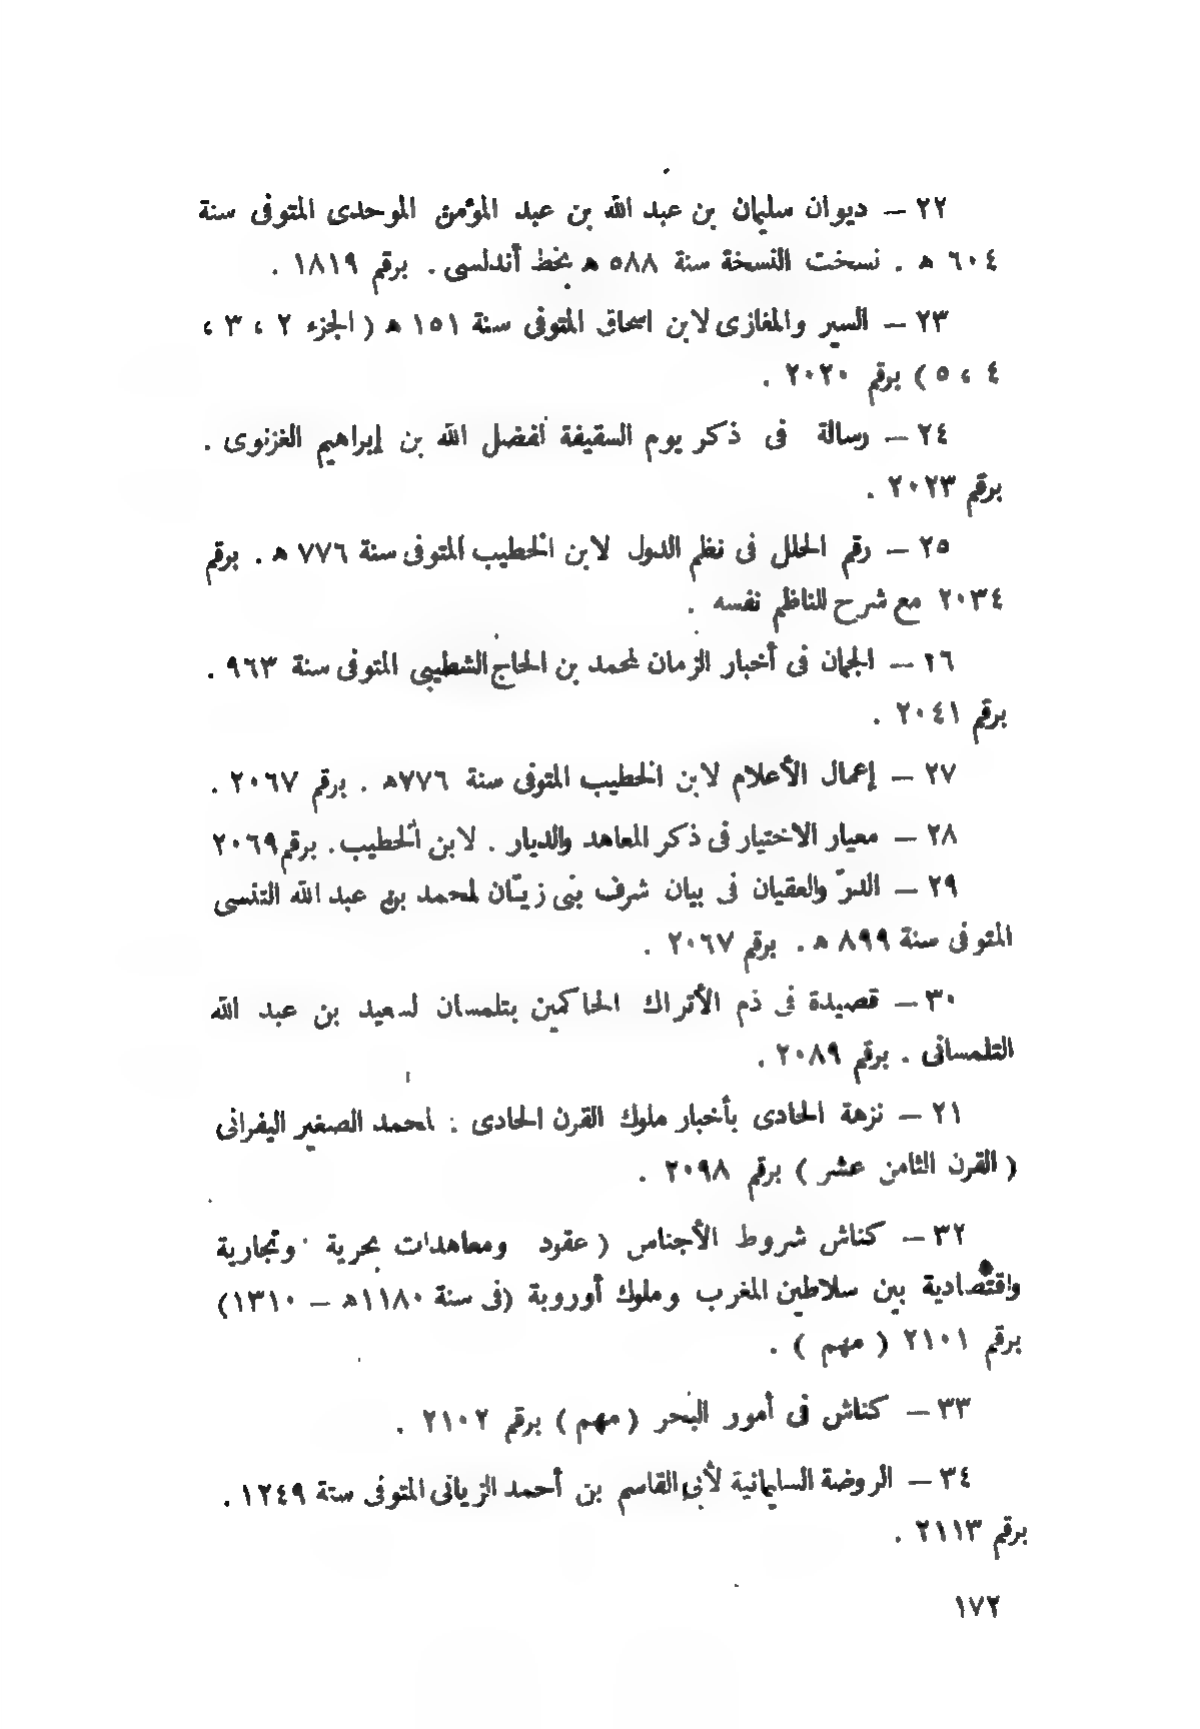 ٢٢ — ديوان سليمان بن عبد الله بن عبد المؤمن الموحدى المتوفى سنة
٦٠٤ ه . نسخت النسخة سنة ٥٨٨ ه بخط أندلسى . برقم ١٨١٩ .
٢٣ — السير والمغازى لابن اسحاق المتوفى سنة ١٥١ ه ( الجزء ٢ ، ٣ ،
٤ ، ٥ ) برقم ٢٠٢٠ .
٢٤ — رسالة فى ذكر يوم السقيفة لفضل الله بن إبراهيم الغزنوى .
برقم ٢٠٢٣ .
٢٥ — رقم الحلل فى نظم الدول لابن الخطيب المتوفى سنة ٧٧٦ ه . برقم
٢٠٣٤ مع شرح للناظم نفسه .
٢٦ — الجمان فى أخبار الزمان لمحمد بن الحاج الشطيبى المتوفى سنة ٩٦٣ .
برقم ٢٠٤١ .
٢٧ — إعمال الأعلام لابن الخطيب المتوفى سنة ٧٧٦ه . برقم ٢٠٦٧ .
٢٨ — معيار الاختيار فى ذكر المعاهد والديار . لابن الخطيب . برقم ٢٠٦٩
٢٩ — الدرّ والعقيان فى بيان شرف بنى زيّان لمحمد بن عبد الله التنسى
المتوفى سنة ٨٩٩ ه . برقم ٢٠٦٧ .
٣٠ — قصيدة فى ذم الأتراك الحاكمين بتلمسان لسعيد بن عبد الله
التلمسانى . برقم ٢٠٨٩ .
٢١ — نزهة الحادى بأخبار ملوك القرن الحادى : لمحمد الصغير اليفرانى
( القرن الثامن عشر ) برقم ٢٠٩٨ .
٣٢ — كناش شروط الأجناس ( عقود ومعاهدات بحرية وتجارية
واقتصادية بين سلاطين المغرب وملوك أوروبة (فى سنة ١١٨٠ه — ١٣١٠)
برقم ٢١٠١ ( مهم ) .
٣٣ — كناش فى أمور البحر ( مهم ) برقم ٢١٠٢ .
٣٤ — الروضة السليمانية لأبى القاسم بن أحمد الزيانى المتوفى ستة ١٢٤٩ .
برقم ٢١١٣ .
١٧٢